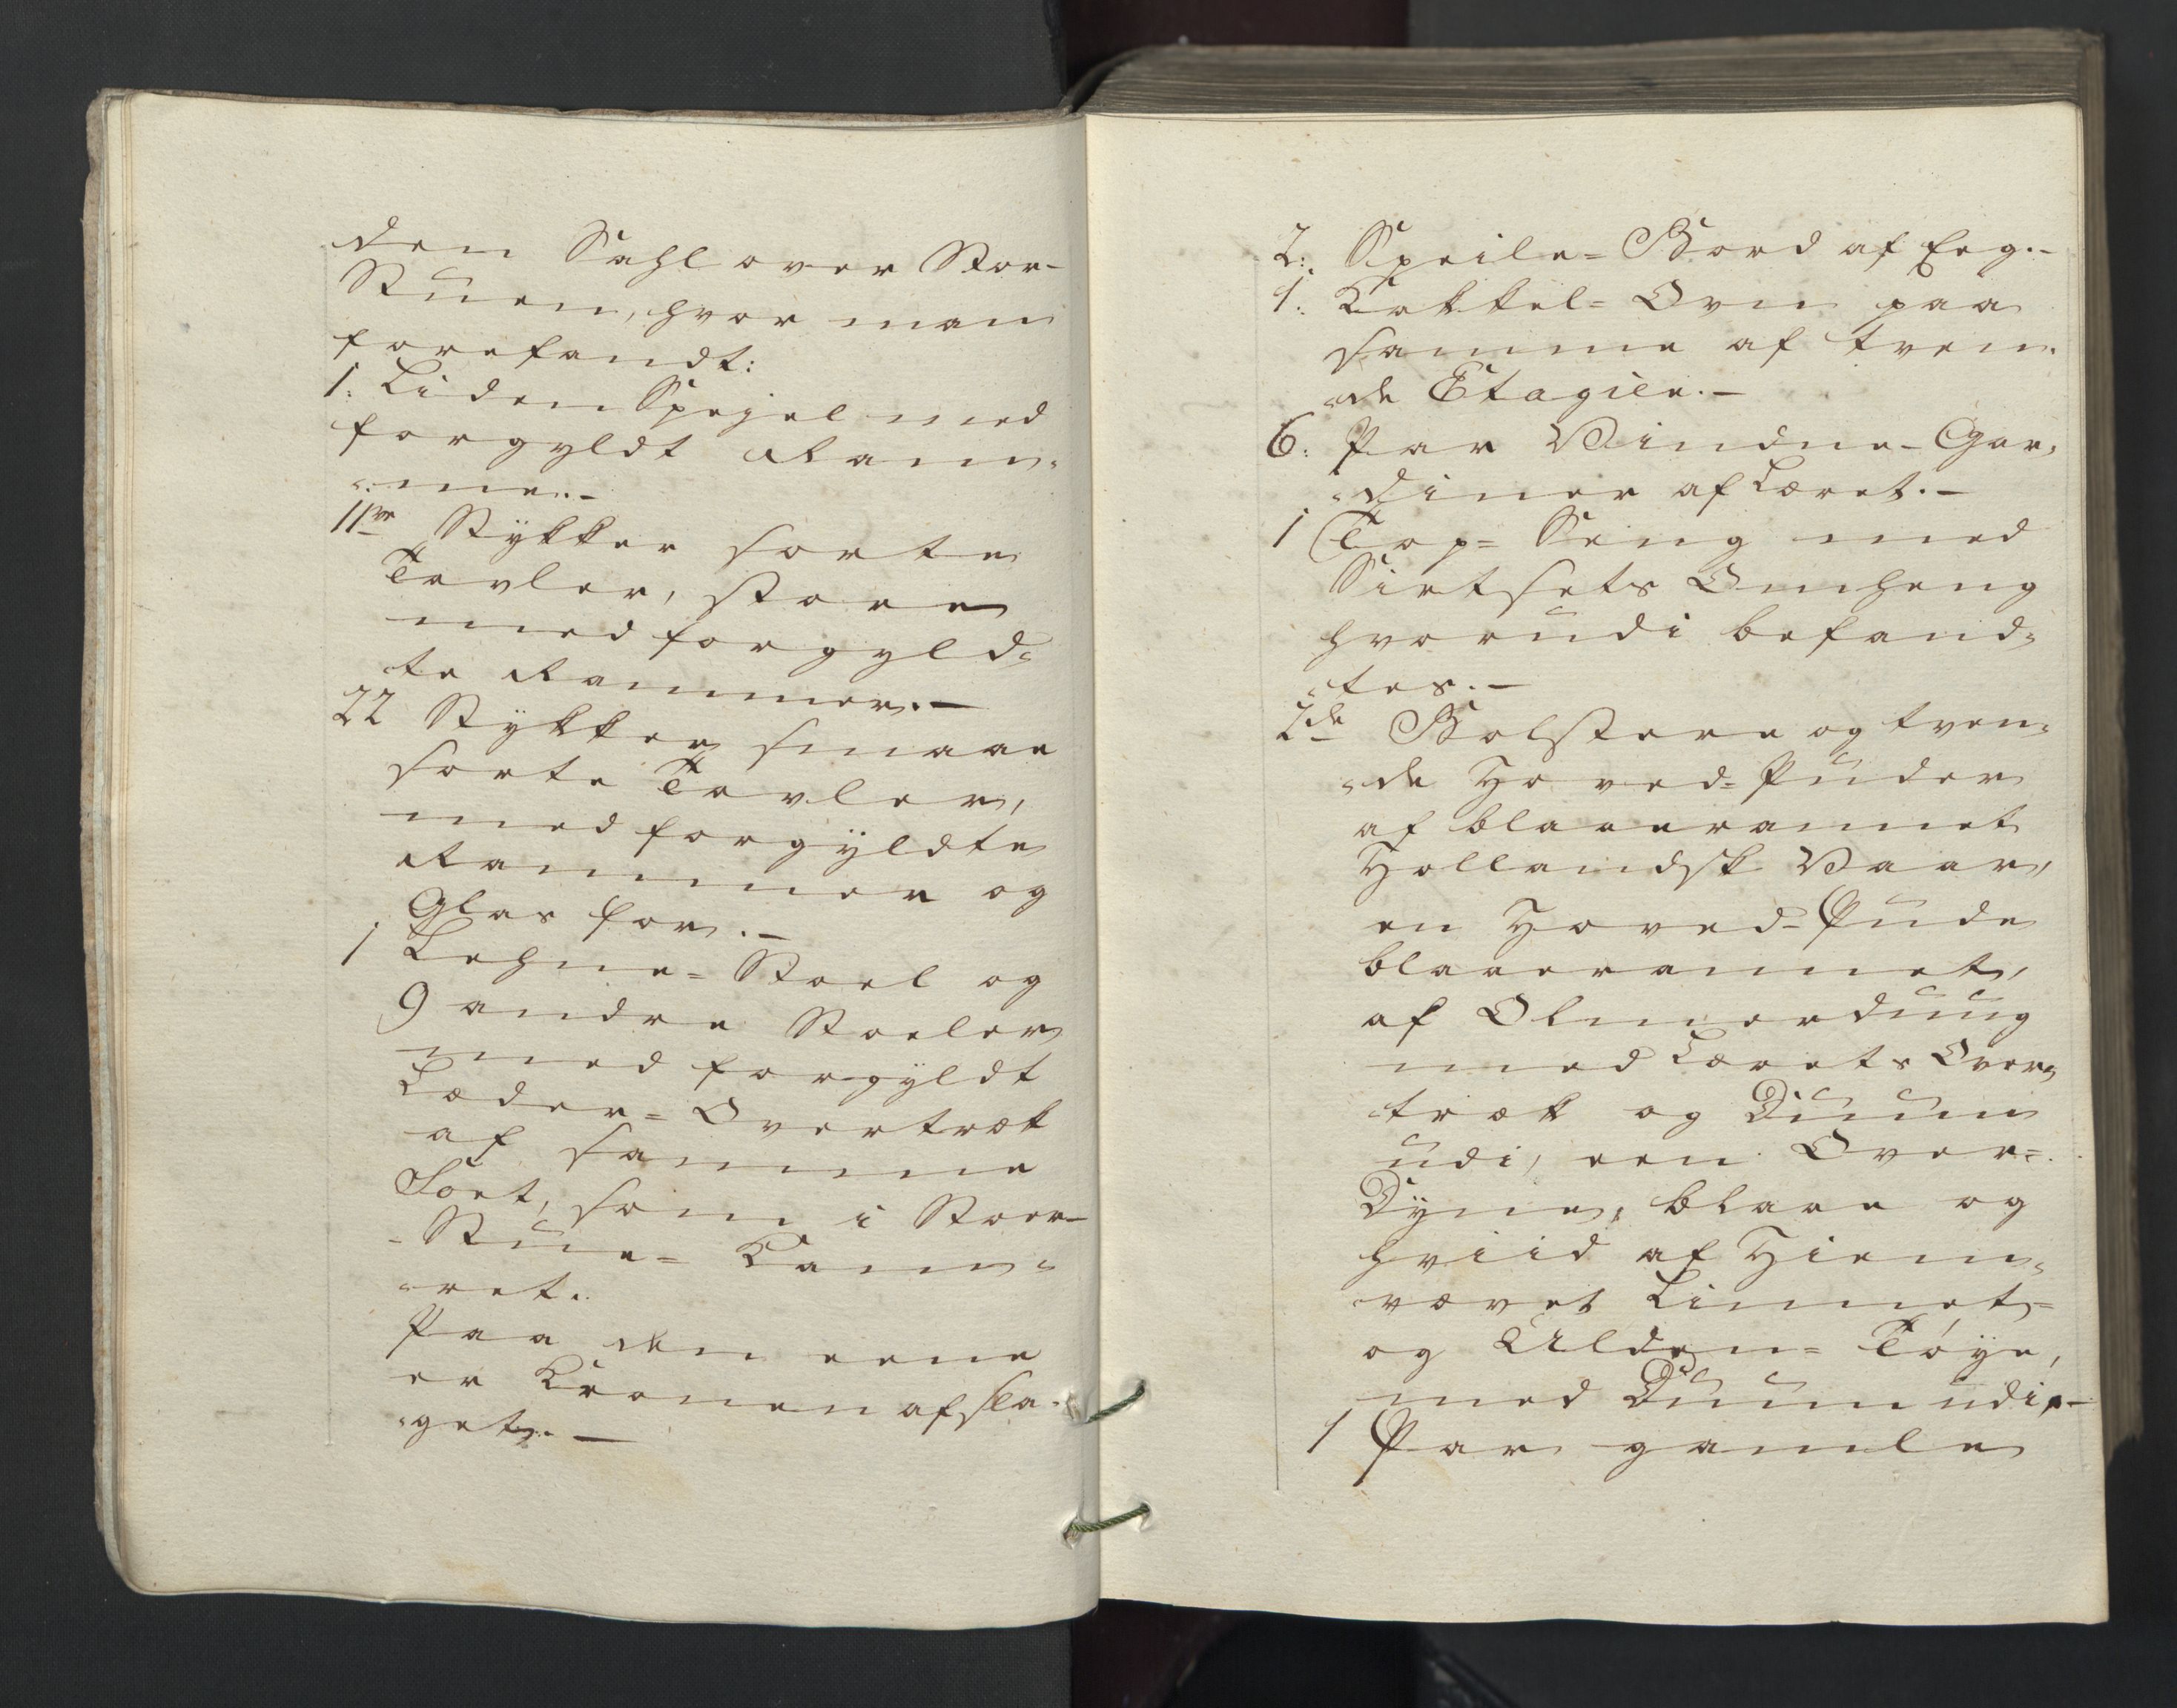 den Sahl over Stor-
Stuen, hvor man
forefandt:
1: Liden Spejel med
forgyldt Ram-
-me.-
11ve Stÿkker sorte
Tavler, store
med forgyld-
te Rammer.-
22 Stÿkker smaae
sorte Tavler,
med forgÿldte
Rammer og
Glas for.-
1 Lehne=Stoel og
9 andre Stoeler
med forgÿldt
Læder=Overtræk
af samme
Sort, som i Stoer-
-Stue=Kam-
-ret.
Paa den eene
er Kronen afsla-
-get.-
2: Speile=Bord af Eeg.-
1: Kakkel=Ovn paa
samme af tven-
-de Etagier.-
6: Par Vindue-Gar-
-diner af Læret.-
1 Top=Seng med
Sirtsets Omheng
hvorudi befand-
-tes.-
2de Bolstere og tven-
-de Hoved=Puder
af blaaerannet
Hollandsk Vaar,
en Hoved=Pude
blaaerannet,
af Olmerduug
med Lærets Over-
træk og Duun
udi, een Over=
Dÿne, blaae og
hviid af Hiem-
-vævet Linnet-
og Ulden=Tøÿe,
med Duun udi.-
1 Par gamle